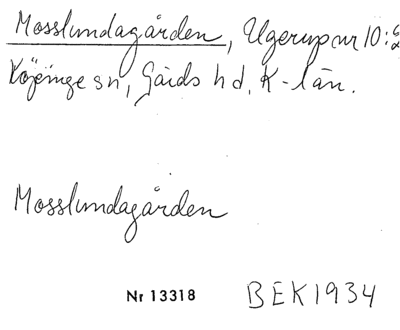 Mosslundagården, Ugerup nr 10:
Köpinge sn, Gärds hd, K-län.
Mosslundagården
Nr 13318 BEK1934